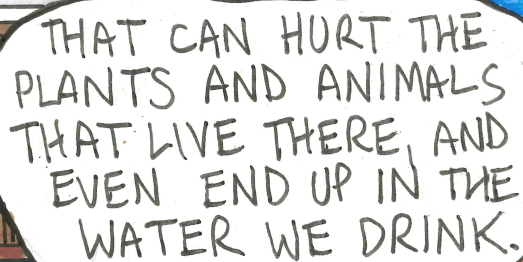 THAT CAN HURT THE
PLANTS AND ANIMALS
THAT LIVE THERE, AND
EVEN END UP IN THE
WATER WE DRINK.